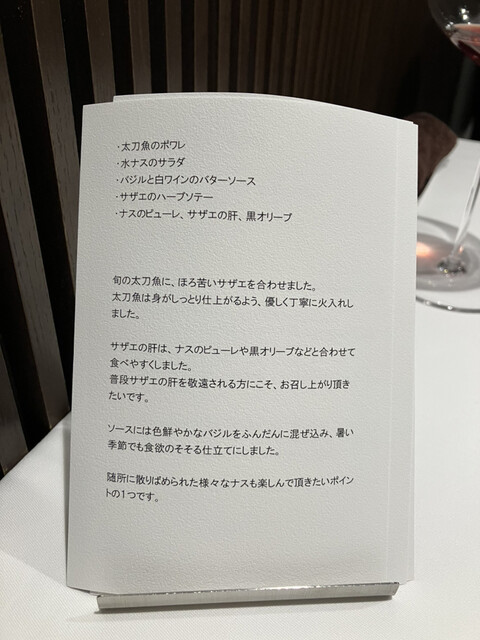 ・太刀魚のポワレ
・水ナスのサラダ
・バジルと白ワインのバターソース
・サザエのハーブソテー
・ナスのピューレ、サザエの肝、黒オリーブ
旬の太刀魚に、ほろ苦いサザエを合わせました。
太刀魚は身がしっとり仕上がるよう、優しく丁寧に火入れし
ました。
サザエの肝は、ナスのピューレや黒オリーブなどと合わせて
食べやすくしました。
普段サザエの肝を敬遠される方にこそ、お召し上がり頂き
たいです。
ソースには色鮮やかなバジルをふんだんに混ぜ込み、暑い
季節でも食欲のそそる仕立てにしました。
随所に散りばめられた様々なナスも楽しんで頂きたいポイン
トの1つです。